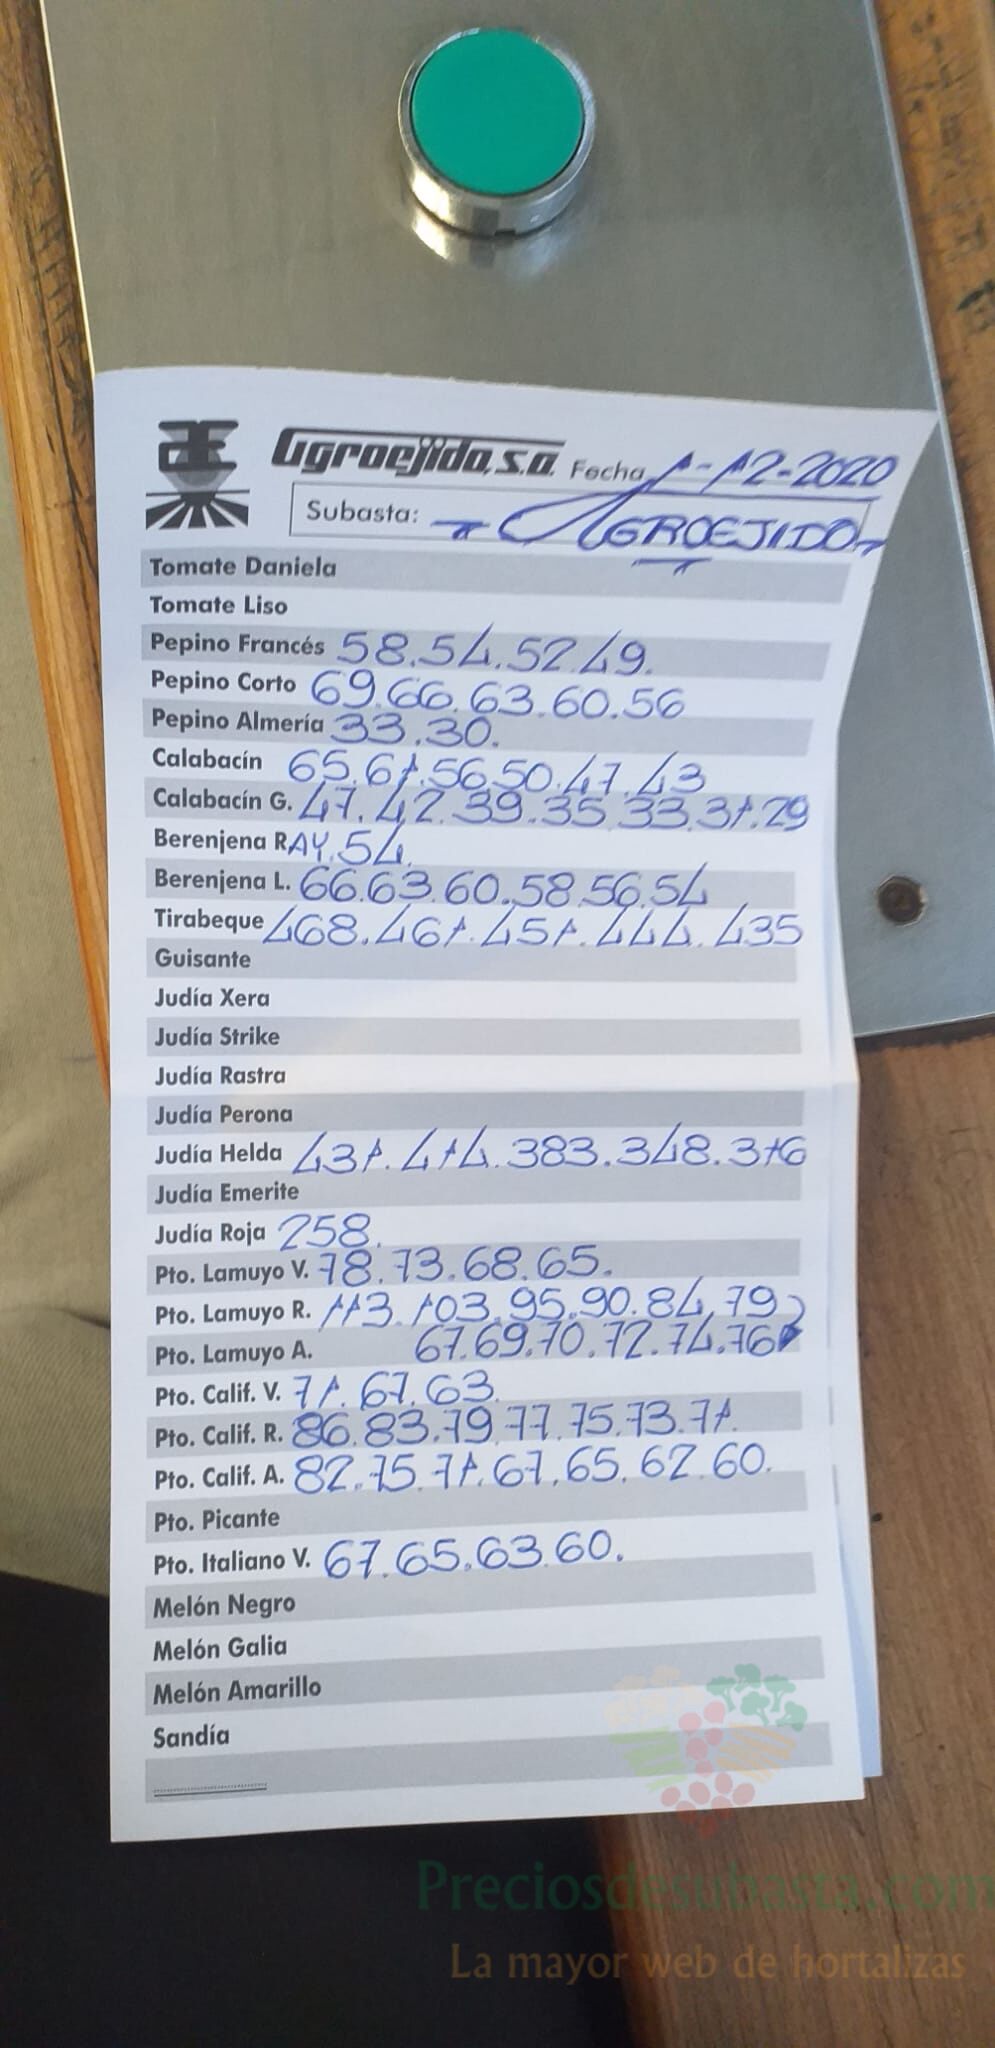 Agroejido, s.a. Fecha 1-12-2020
Subasta: - AGROEJIDO -
Tomate Daniela
Tomate Liso
Pepino Francés 58.54.52.49.
Pepino Corto 69.66.63.60.56
Pepino Almería 33.30.
Calabacín 65.61.56.50.47.43
Calabacín G. 47.42.39.35.33.31.29
Berenjena RAY.54.
Berenjena L. 66.63.60.58.56.54
Tirabeque 468.461.451.444.435
Guisante
Judía Xera
Judía Strike
Judía Rastra
Judía Perona
Judía Helda 431.414.383.348.316
Judía Emerite
Judía Roja 258.
Pto. Lamuyo V. 78.73.68.65.
Pto. Lamuyo R. 113.103.95.90.84.79
Pto. Lamuyo A. 67.69.70.72.74.76
Pto. Calif. V. 71.67.63.
Pto. Calif. R. 86.83.79.77.75.73.71.
Pto. Calif. A. 82.75.71.67.65.62.60.
Pto. Picante
Pto. Italiano V. 67.65.63.60.
Melón Negro
Melón Galia
Melón Amarillo
Sandía
Preciosdesubasta.com
La mayor web de hortalizas